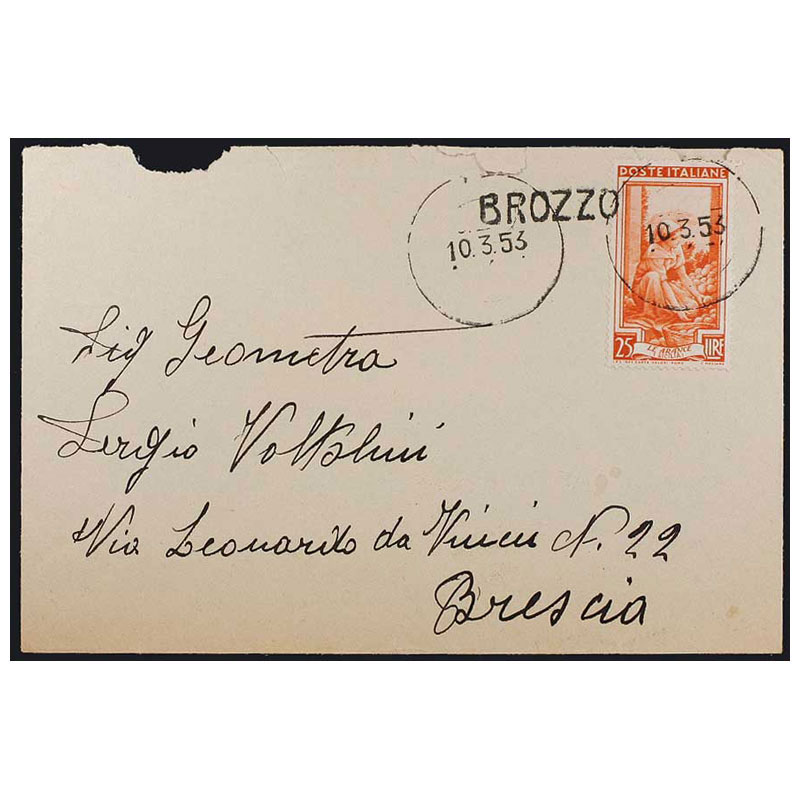 BROZZO
10.3.53
10.3.53
POSTE ITALIANE
25 LE ARANCE LIRE
Sig Geometra
Sergio
Via Leonardo da Vinci N. 22
Brescia